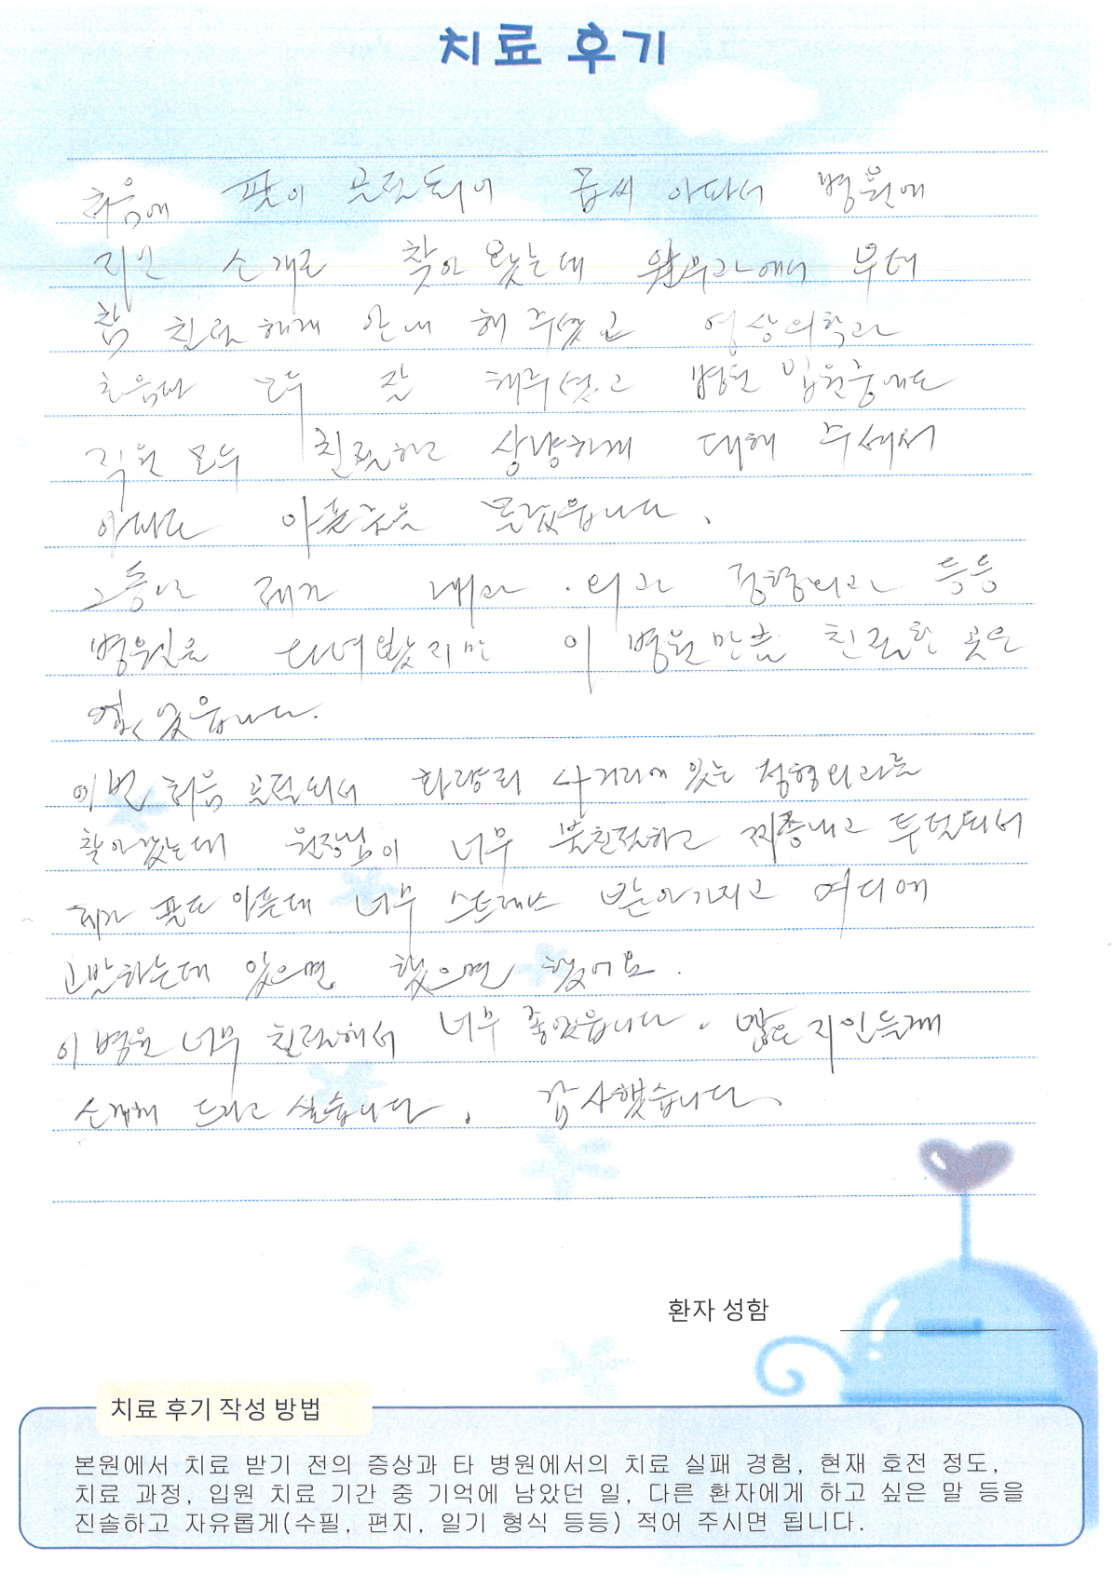 치료 후기
처음에 팔이 골절되어 몹씨 아파서 병원에
지인 소개로 찾아 왔는데 원무과에서 부터
참 친절하게 안내 해 주셨고 영상의학과
모두 잘 해주셨고 병원 입원중에도
직원 모두 친절하고 상냥하게 대해 주셔서
아파도 아픈줄을 몰랐읍니다.
그동안 제가 내과 . 외과 정형외과 등등
병원을 다녀봤지만 이 병원만큼 친절한 곳은
없었읍니다.
이번 처음 골절되서 화랑의 사거리에 있는 정형외과를
찾아갔는데 원장님이 너무 불친절하고 찌증내고 투덜되서
제가 팔도 아픈데 너무 스트레스 받아가지고 어디에
고발하는데 있으면 했으면 했어요.
이 병원 너무 친절해서 너무 좋았읍니다. 많은 지인들께
소개해 드리고 싶습니다. 감사했습니다.
환자 성함
치료 후기 작성 방법
본원에서 치료 받기 전의 증상과 타 병원에서의 치료 실패 경험, 현재 호전 정도,
치료 과정, 입원 치료 기간 중 기억에 남았던 일, 다른 환자에게 하고 싶은 말 등을
진솔하고 자유롭게(수필, 편지, 일기 형식 등등) 적어 주시면 됩니다.